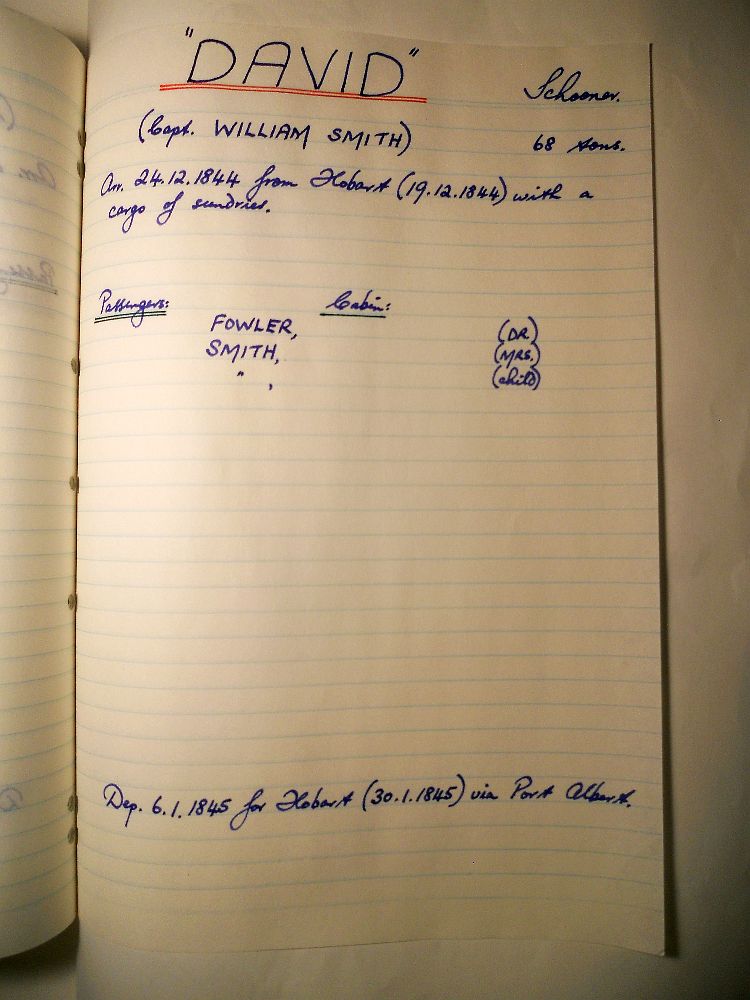 "DAVID"
Schooner.
(Capt. WILLIAM SMITH)
68 tons.
Arr. 24.12.1844 from Hobart (19.12.1844) with a
cargo of sundries.
Passengers: Cabin:
FOWLER, (DR.)
SMITH, (MRS.)
" , (child)
Dep. 6.1.1845 for Hobart (30.1.1845) via Port Albert.